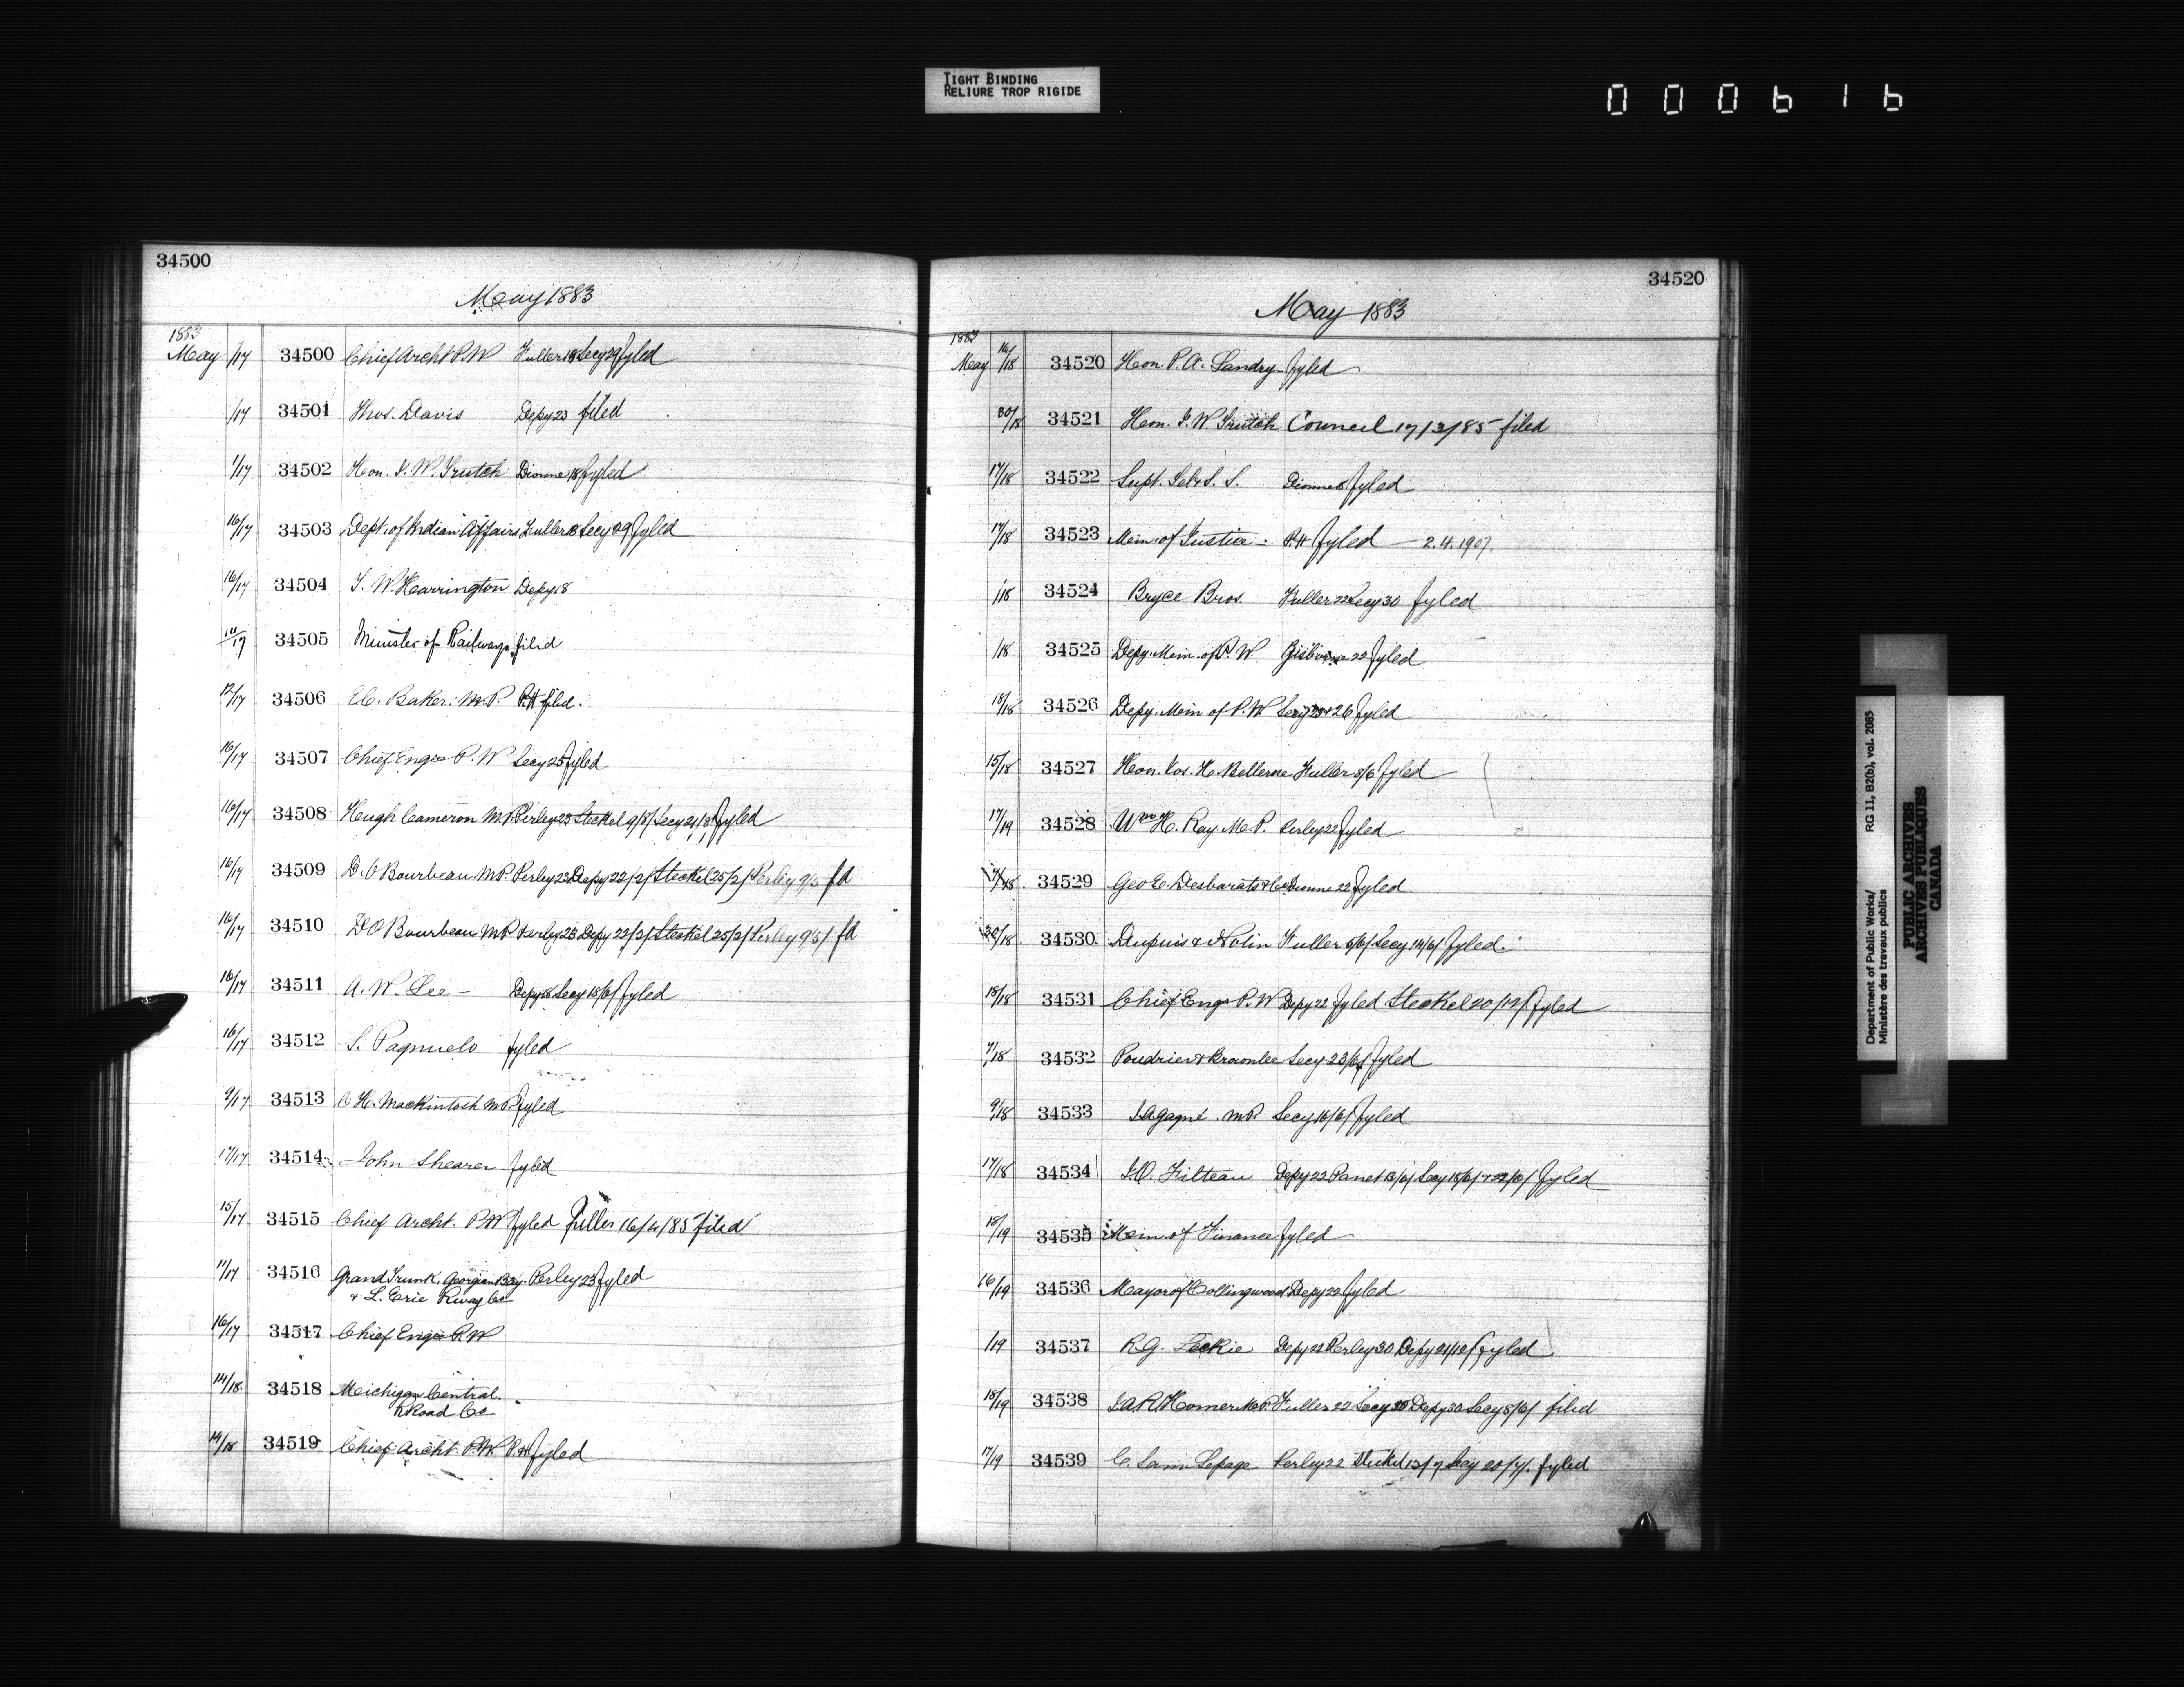 TIGHT BINDING
RELIURE TROP RIGIDE
000616
34500
May 1883
1883
May /17 34500 Chief Archt P.W Fuller 18 Secy 29 fyled
/17 34501 Thos. Davis Depy 23 filed
1/17 34502 Hon. J. W. Trutch Dionne 18 fyled
16/17 34503 Dept. of Indian Affairs Fuller 18 Secy 29 fyled
16/17 34504 T. W. Harrington Depy 18
34505 Minister of Railways filed
12/17 34506 E.C. Baker. M.P. P.H filed.
16/17 34507 Chief Engr P.W Secy 25 fyled
16/17 34508 Hugh Cameron M.P. Perley 23 Steckel 9/8/ Secy 21/8/ fyled
16/17 34509 D. O Bourbeau M.P. Perley 23 Depy 22/2/ Steckel 25/2/ Perley 9/5 fd
16/17 34510 D O Bourbeau M.P. Perley 23 Depy 22/2/ Steckel 25/2/ Perley 9/5/ fd
16/17 34511 A. W. Lee - Depy 18 Secy 18/6/ fyled
16/17 34512 S. Pagnuelo fyled
9/17 34513 C H. Mackintosh M.P. fyled
17/17 34514 John Shearer fyled
15/17 34515 Chief Archt. P.W fyled Fuller 16/4/85 filed
11/17 34516 Grand Trunk, Georgian Bay. Perley 23 fyled
& L. Erie Rway Co
16/17 34517 Chief Engr P.W
14/18 34518 Michigan Central.
R Road Co
14/18 34519 Chief Archt. P.W. P.H. fyled
34520
May 1883
1883
May 16/18 34520 Hon. P. A. Landry fyled
30/18 34521 Hon. J. W. Trutch Council 17/3/85 filed
17/18 34522 Supt. Tel & S. S. Dionne fyled
17/18 34523 Min. of Justice. P.H fyled — 2.4.1907.
/18 34524 Bryce Bros. Fuller 22 Secy 30 fyled
/18 34525 Depy. Min. of P. W. Gisborne 22 fyled
18/18 34526 Depy. Min of P.W. Secy 23 & 26 fyled
15/18 34527 Hon. Jos. H. Bellerose Fuller 5/6 fyled
17/19 34528 Wm H. Ray. M.P. Perley 22 fyled
34529 Geo E. Desbarats & Co Dionne 22 fyled
34530 Dupuis & Nolin Fuller 5/6/ Secy 14/6/ fyled.
18/18 34531 Chief Engr P.W Depy 22 fyled Steckel 20/12/ fyled
7/18 34532 Poudrier & Brownlee Secy 23/6/ fyled
9/18 34533 J. A Gagné. M.P. Secy 16/6/ fyled
17/18 34534 J.O. Filteau Depy 22 Panet 13/6/ Secy 18/6/ & 22/6/ fyled
18/19 34535 Min. of Finance fyled
16/19 34536 Mayor of Collingwood Depy 22 fyled
/19 34537 R.G. Leckie Depy 22 Perley 30 Depy 21/12/ fyled
18/19 34538 J.A.R. Homer M.P. Fuller 22 Secy 30 Depy 30 Secy 8/6/ filed
17/19 34539 C. Sam Lepage Perley 22 Steckel 13/7 Secy 20/7/. fyled
Department of Public Works/ RG 11, B2(b), vol. 2085
Ministère des travaux publics
PUBLIC ARCHIVES
ARCHIVES PUBLIQUES
CANADA